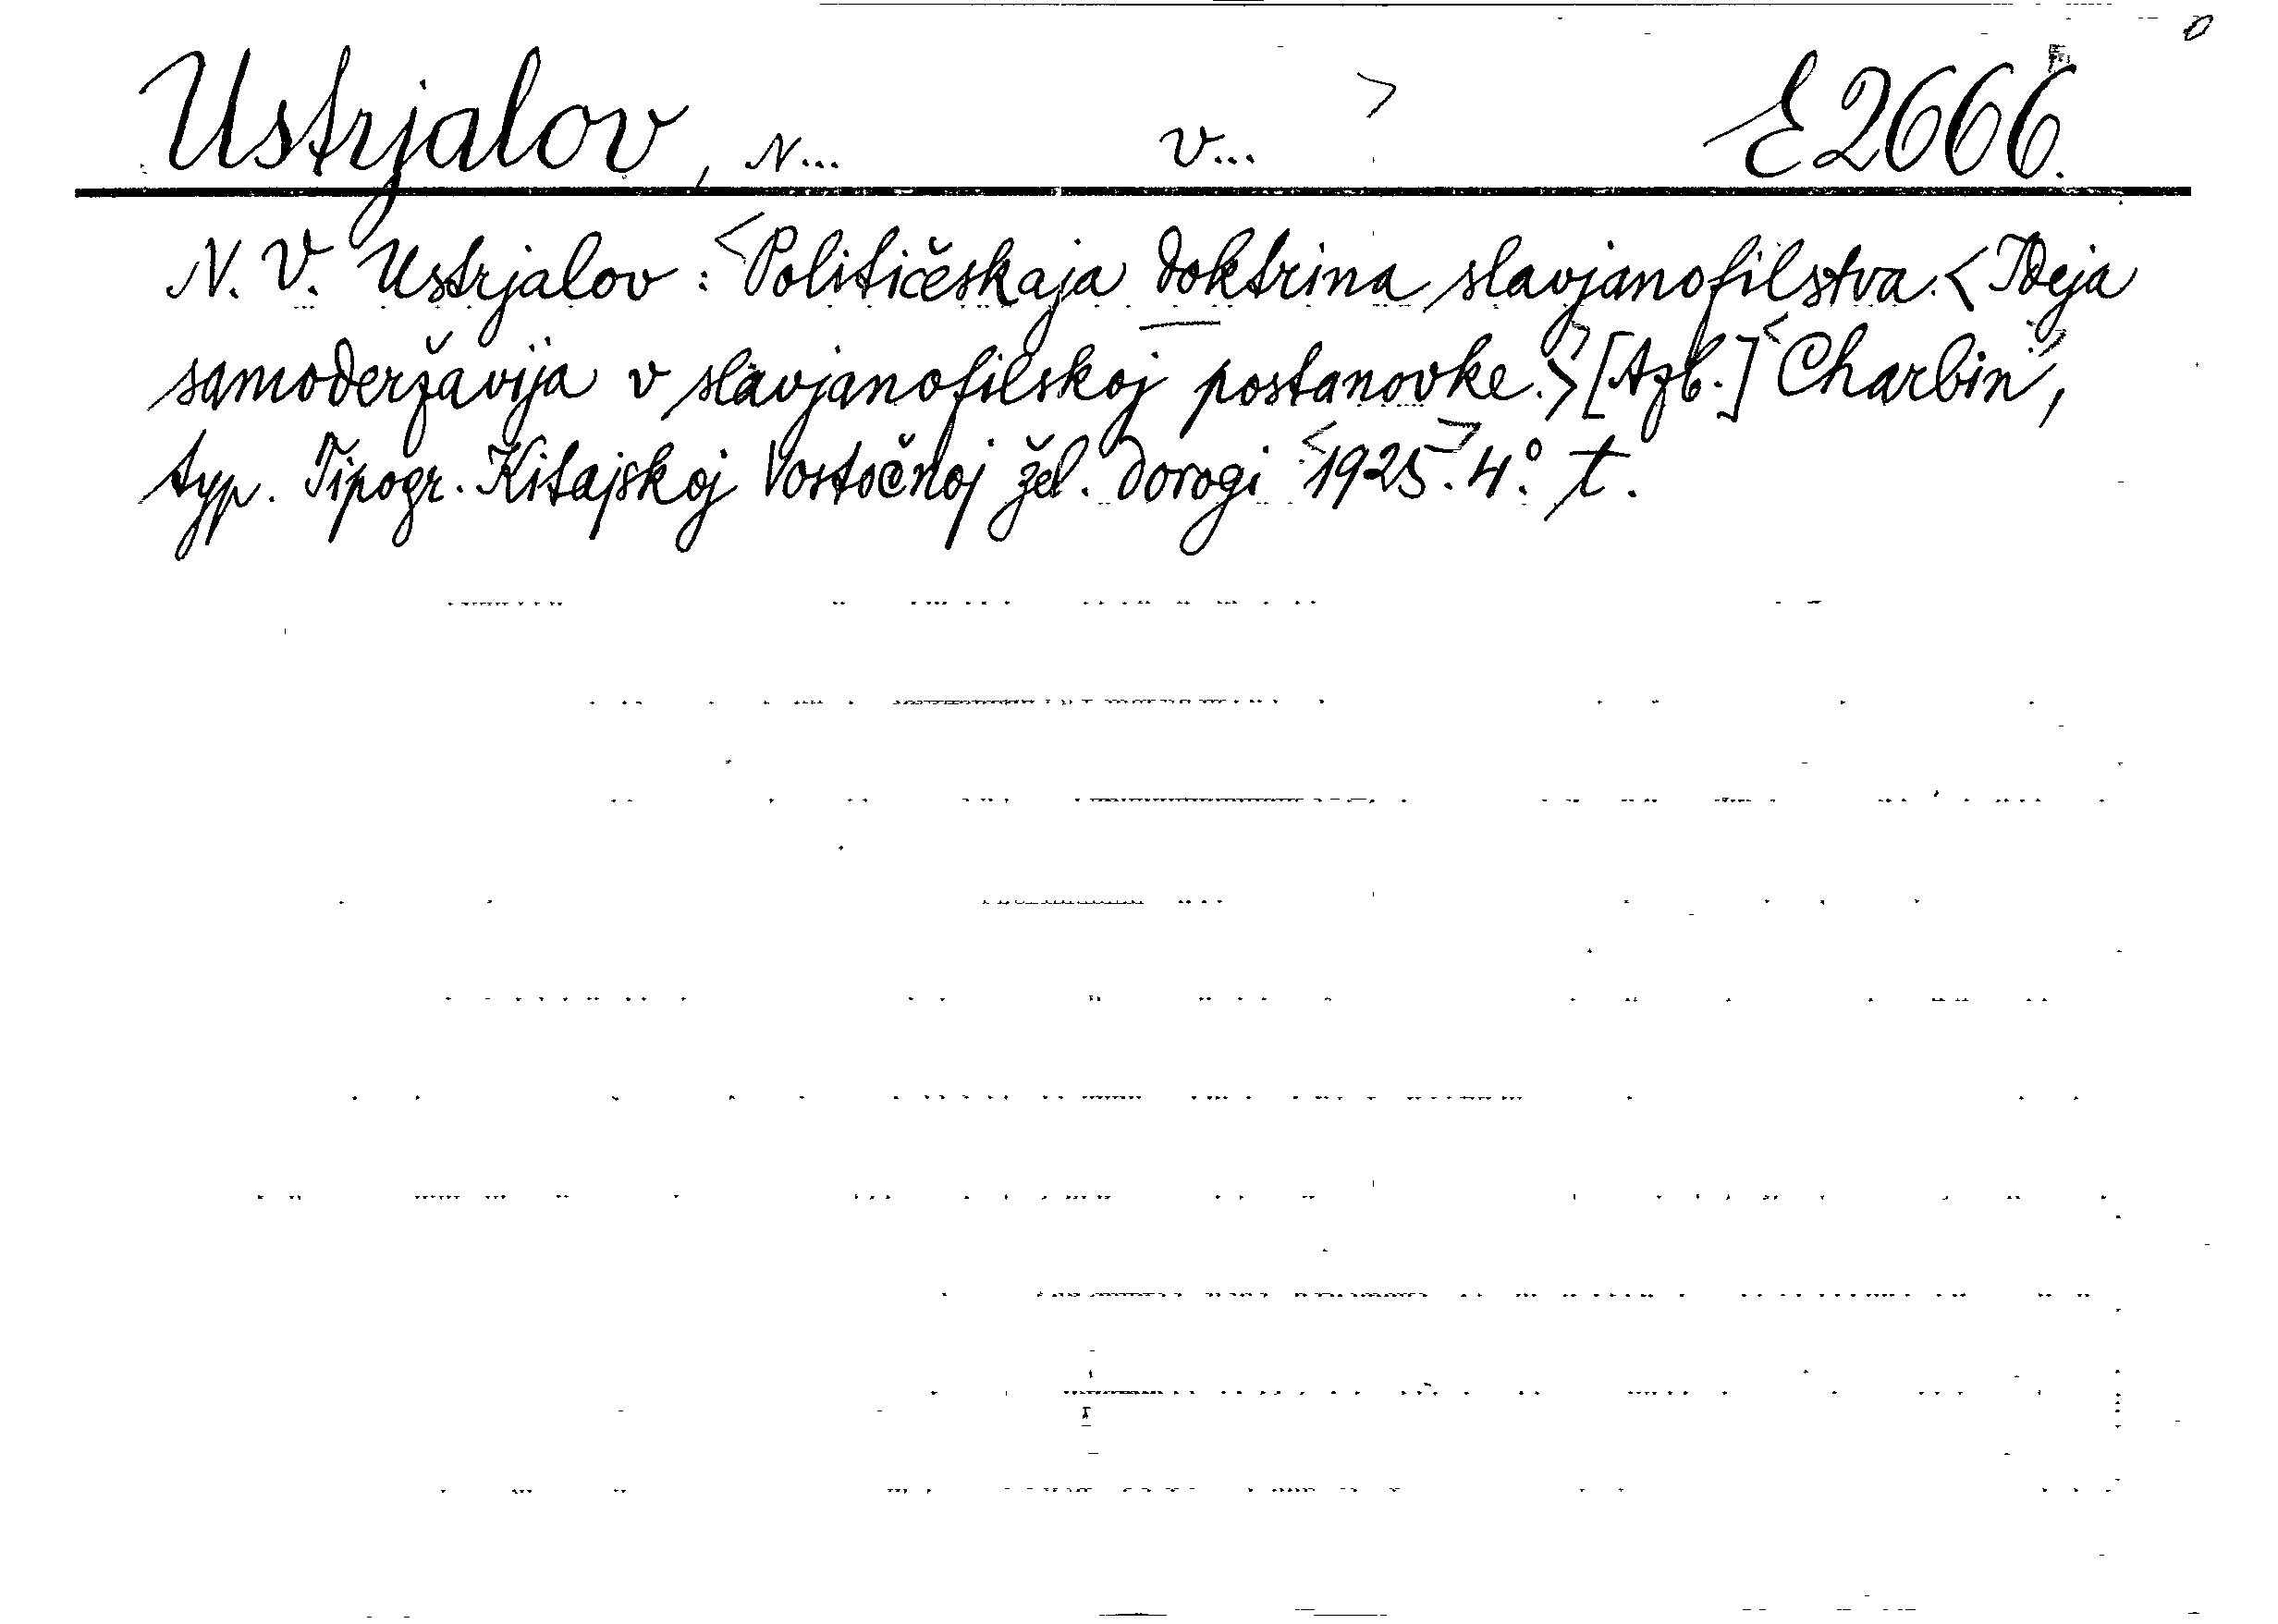 Ustrjalov, N... V... > E 2666.
N. V. Ustrjalov: <Političeskaja doktrina slavjanofilstva. <Ideja
samoderžavija v slavjanofilskoj postanovke.>> [Azb.] <Charbin>,
typ. Tipogr. Kitajskoj Vostočnoj žel. dorogi <1925>. 4° t.